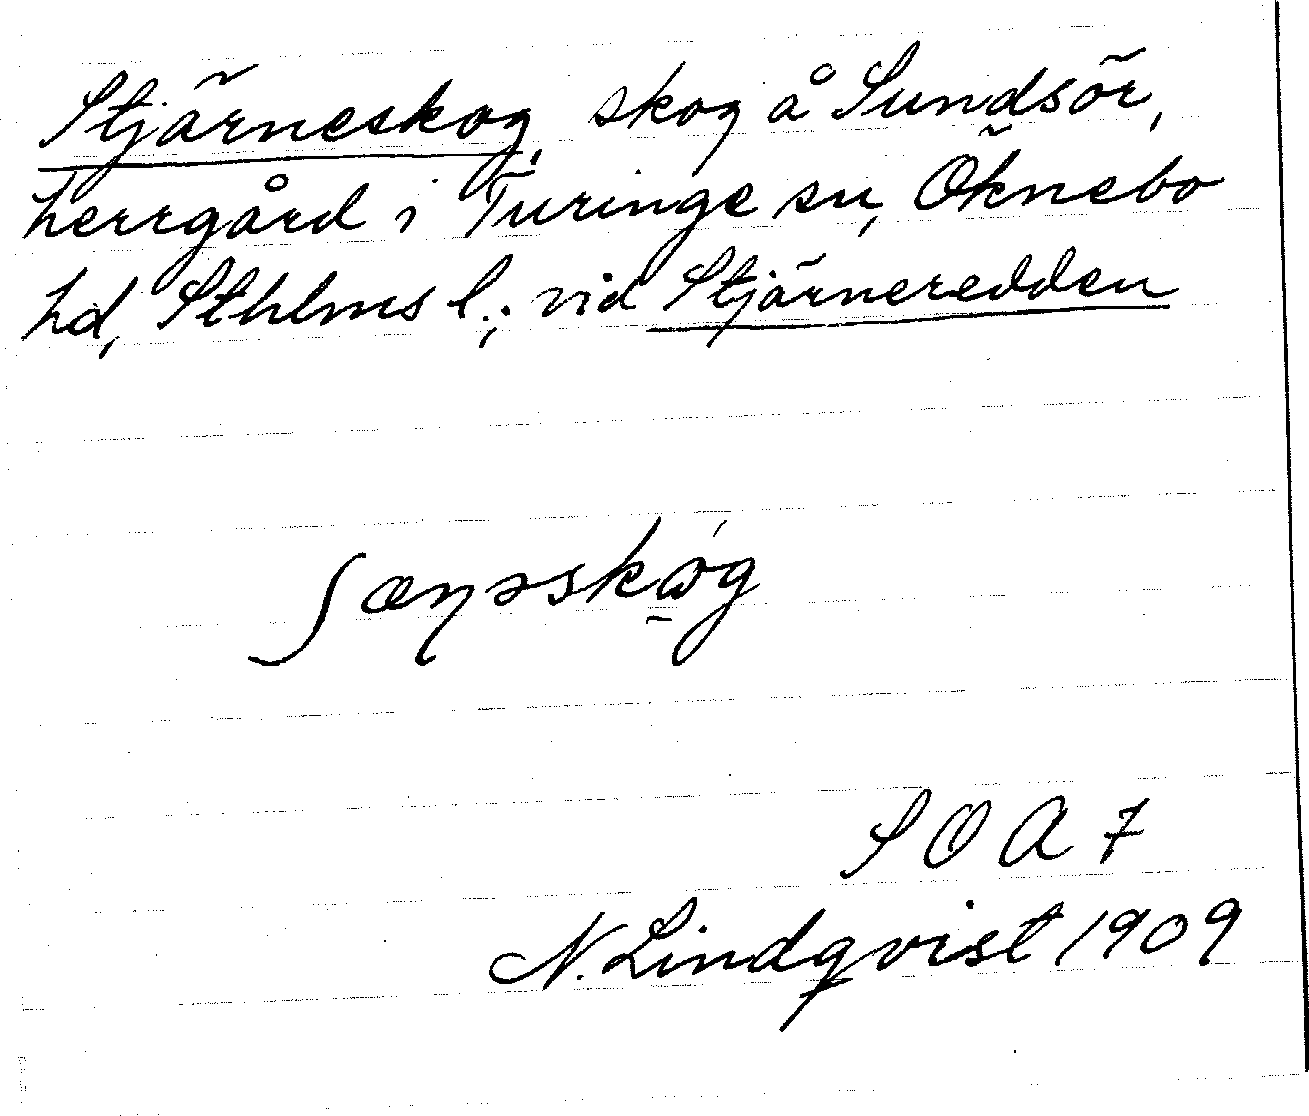 Stjärneskog, skog å Sundsör,
herrgård i Turinge sn, Öknebo
hd, Sthlms l.; vid Stjärneredden
SOA 7
N. Lindqvist 1909